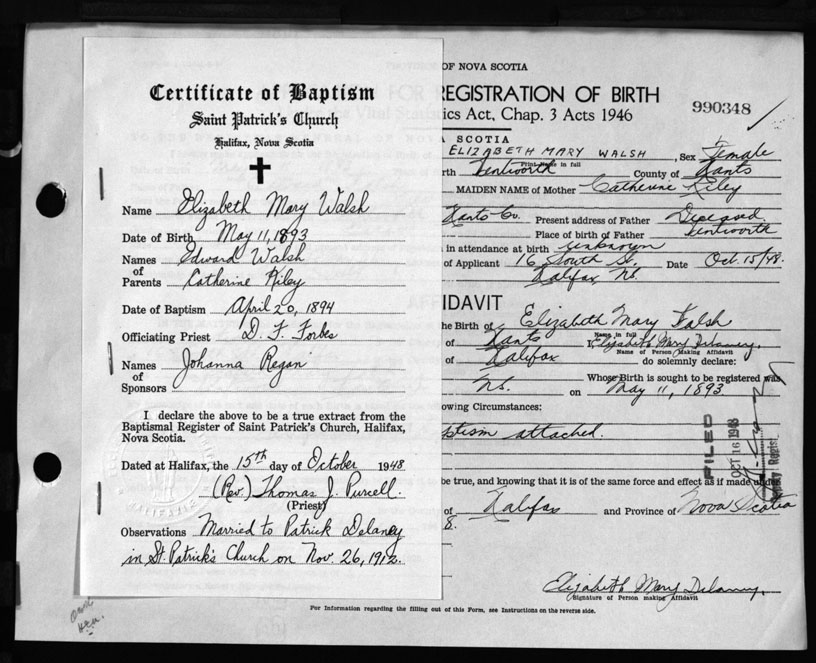 Certificate of Baptism
Saint Patrick's Church
Halifax, Nova Scotia
Name Elizabeth Mary Walsh
Date of Birth May 11, 1893
Names of Parents Edward Walsh
Catherine Riley
Date of Baptism April 20, 1894
Officiating Priest D. F. Forbes
Names of Sponsors Johanna Regan
I declare the above to be a true extract from the
Baptismal Register of Saint Patrick's Church, Halifax,
Nova Scotia.
Dated at Halifax, the 15th day of October 1948
(Rev.) Thomas J. Purcell.
(Priest)
Observations Married to Patrick Delaney
in St. Patrick's Church on Nov. 26, 1912.
OF NOVA SCOTIA
FOR REGISTRATION OF BIRTH
tics Act, Chap. 3 Acts 1946
990348
A SCOTIA
ELIZABETH MARY WALSH, Sex Female
Print Name in full
irth Kentworth County of Hants
MAIDEN NAME of Mother Catherine Riley
Hants Co. Present address of Father Deceased
Place of birth of Father Kentworth
in attendance at birth unknown
of Applicant 16 South St. Date Oct. 15/48.
Halifax, NS.
FIDAVIT
he Birth of Elizabeth Mary Walsh
Name in full
of Hants I, Elizabeth Mary Delaney,
Name of Person Making Affidavit
of Halifax do solemnly declare:
NS. Whose Birth is sought to be registered was
on May 11, 1893
owing Circumstances:
ptism attached.
FILED
OCT 16 1948
Deputy Regist
be true, and knowing that it is of the same force and effect as if made under
of Halifax and Province of Nova Scotia
8.
Elizabeth Mary Delaney.
Signature of Person making Affidavit
For Information regarding the filling out of this Form, see Instructions on the reverse side.